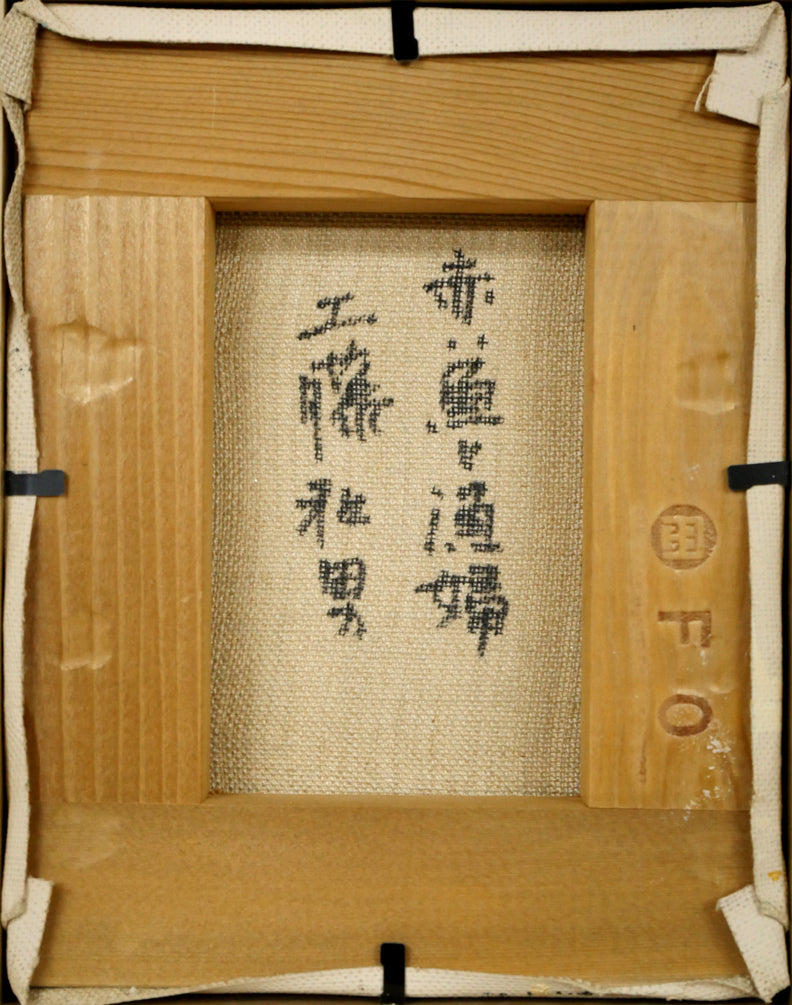 赤い魚と漁婦
工藤和男
F0